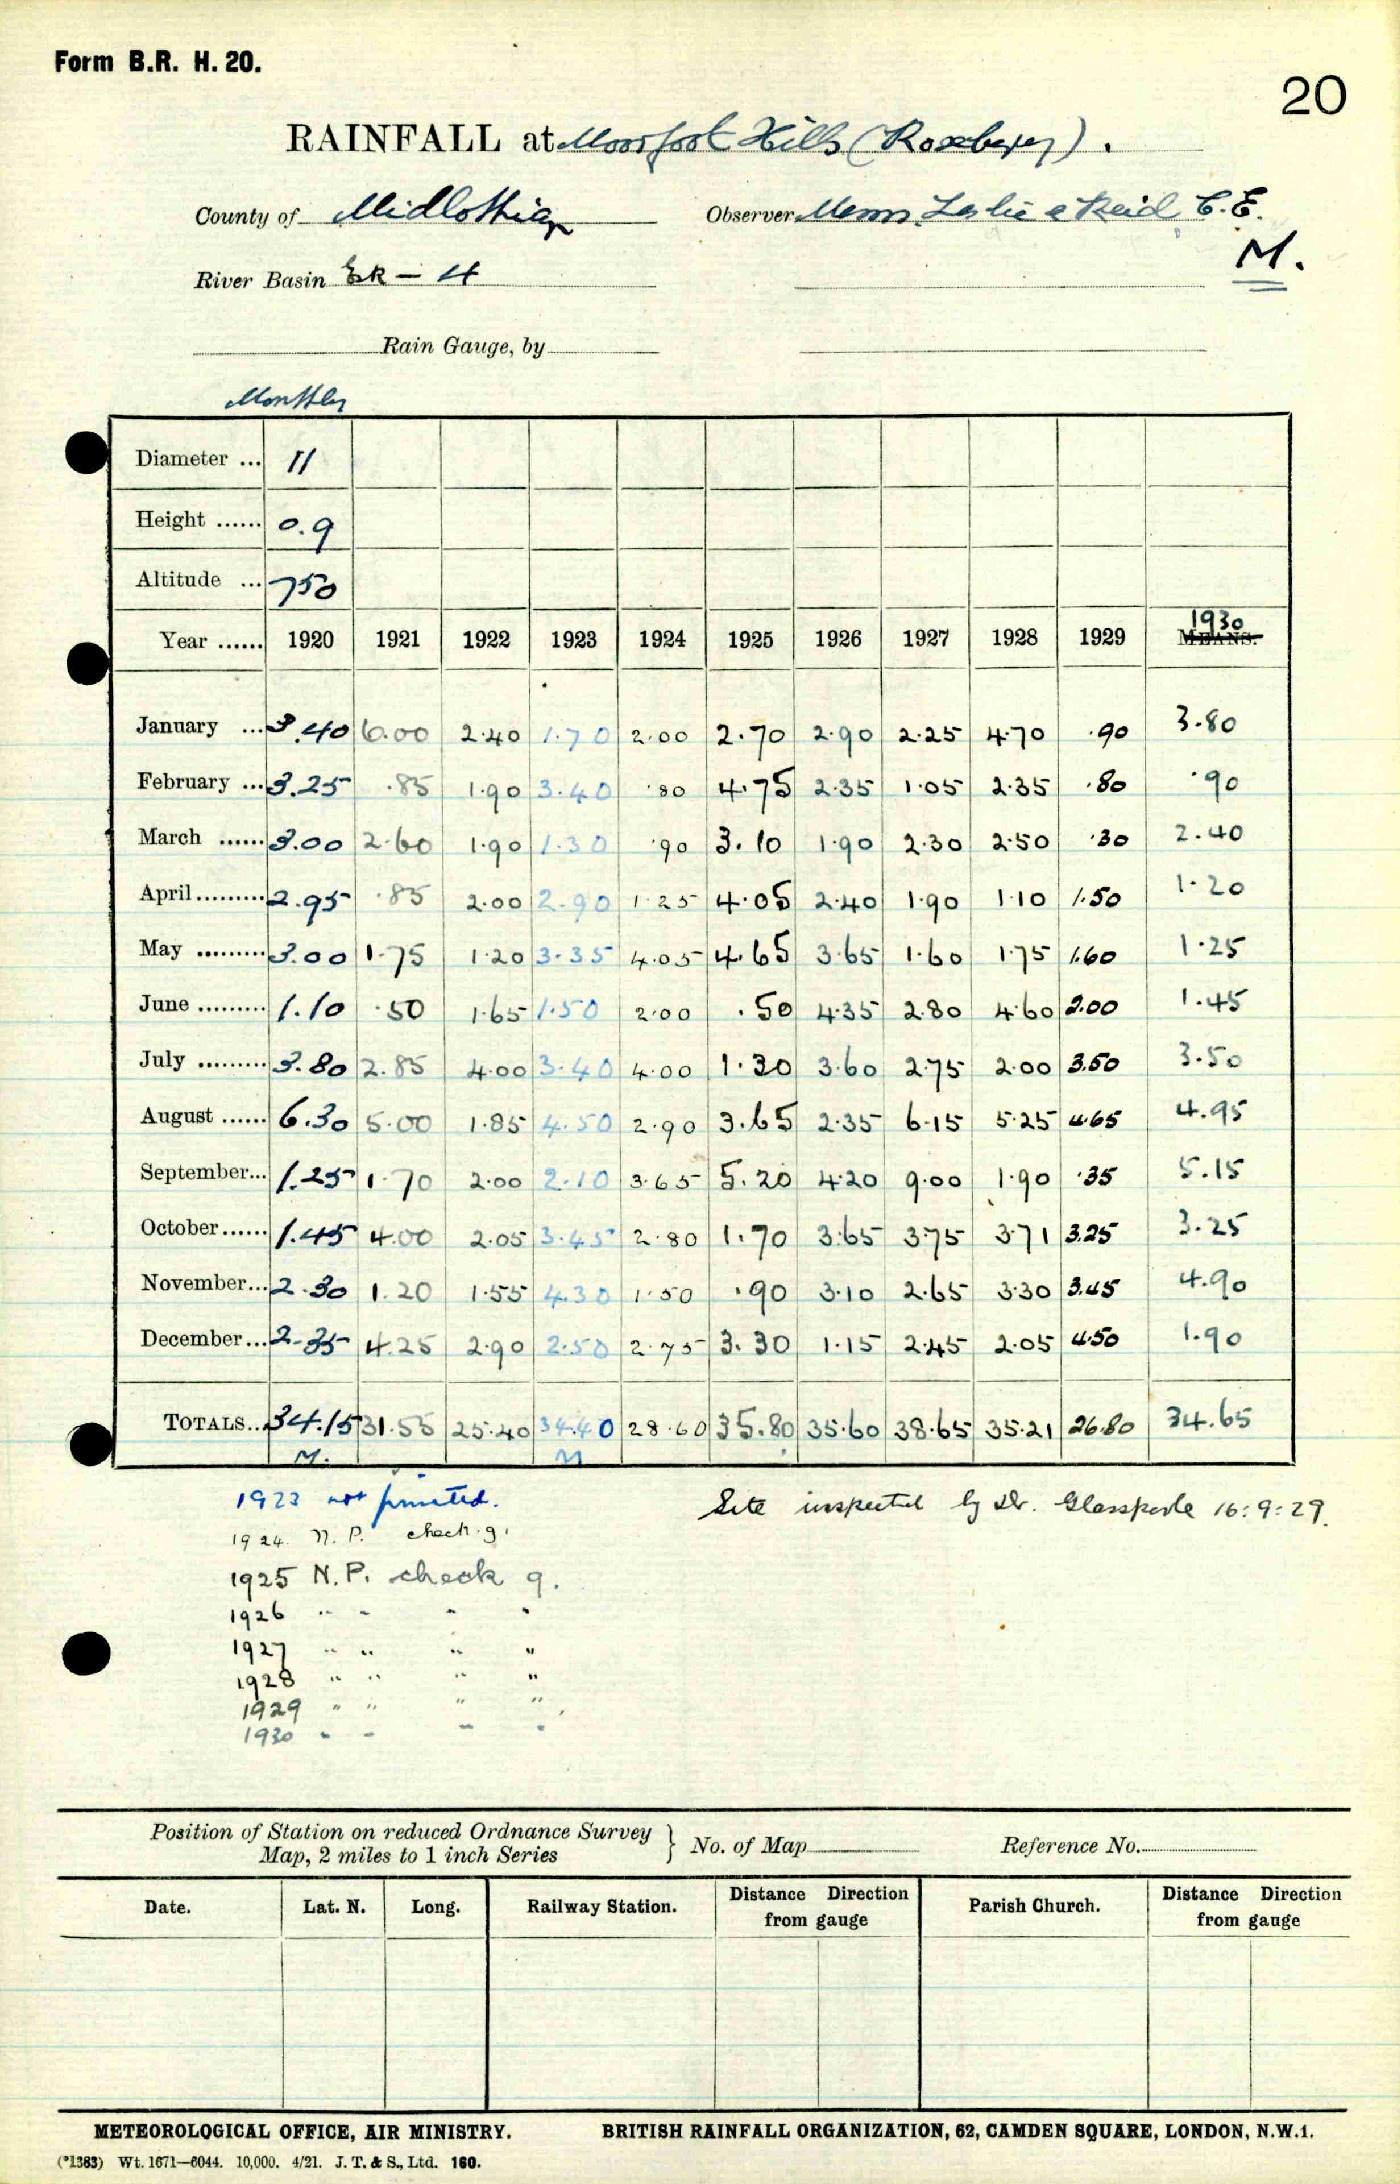 Form B.R. H. 20.
20
RAINFALL at Moorfoot Hills (Rosebery).
County of Midlothian Observer Messrs. Leslie & Reid C.E.
M.
River Basin Esk - 4
Rain Gauge, by
Monthly
Diameter ... 11
Height ...... 0.9
Altitude ... 750
Year ...... 1920 1921 1922 1923 1924 1925 1926 1927 1928 1929 1930 MEANS.
January ... 3.40 6.00 2.40 1.70 2.00 2.70 2.90 2.25 4.70 .90 3.80
February ... 3.25 .85 1.90 3.40 .80 4.75 2.35 1.05 2.35 .80 .90
March ...... 3.00 2.60 1.90 1.30 .90 3.10 1.90 2.30 2.50 .30 2.40
April......... 2.95 .85 2.00 2.90 1.25 4.05 2.40 1.90 1.10 1.50 1.20
May ......... 3.00 1.75 1.20 3.35 4.05 4.65 3.65 1.60 1.75 1.60 1.25
June ......... 1.10 .50 1.65 1.50 2.00 .50 4.35 2.80 4.60 2.00 1.45
July ......... 3.80 2.85 4.00 3.40 4.00 1.30 3.60 2.75 2.00 3.50 3.50
August ...... 6.30 5.00 1.85 4.50 2.90 3.65 2.35 6.15 5.25 4.65 4.95
September... 1.25 1.70 2.00 2.10 3.65 5.20 4.20 9.00 1.90 .35 5.15
October...... 1.45 4.00 2.05 3.45 2.80 1.70 3.65 3.75 3.71 3.25 3.25
November... 2.30 1.20 1.55 4.30 1.50 .90 3.10 2.65 3.30 3.45 4.90
December... 2.35 4.25 2.90 2.50 2.75 3.30 1.15 2.45 2.05 4.50 1.90
TOTALS... 34.15 31.55 25.40 34.40 28.60 35.80 35.60 38.65 35.21 26.80 34.65
M. M
1923 not printed. Site inspected by Dr. Glasspoole 16:9:29.
1924. N.P. check g.
1925 N.P. check g.
1926 " " " "
1927 " " " "
1928 " " " "
1929 " " " "
1930 " " " "
Position of Station on reduced Ordnance Survey
Map, 2 miles to 1 inch Series } No. of Map Reference No.
Date. Lat. N. Long. Railway Station. Distance from gauge Direction from gauge Parish Church. Distance from gauge Direction from gauge
METEOROLOGICAL OFFICE, AIR MINISTRY. BRITISH RAINFALL ORGANIZATION, 62, CAMDEN SQUARE, LONDON, N.W.1.
(*1383) Wt. 1671—6044. 10,000. 4/21. J. T. & S., Ltd. 160.